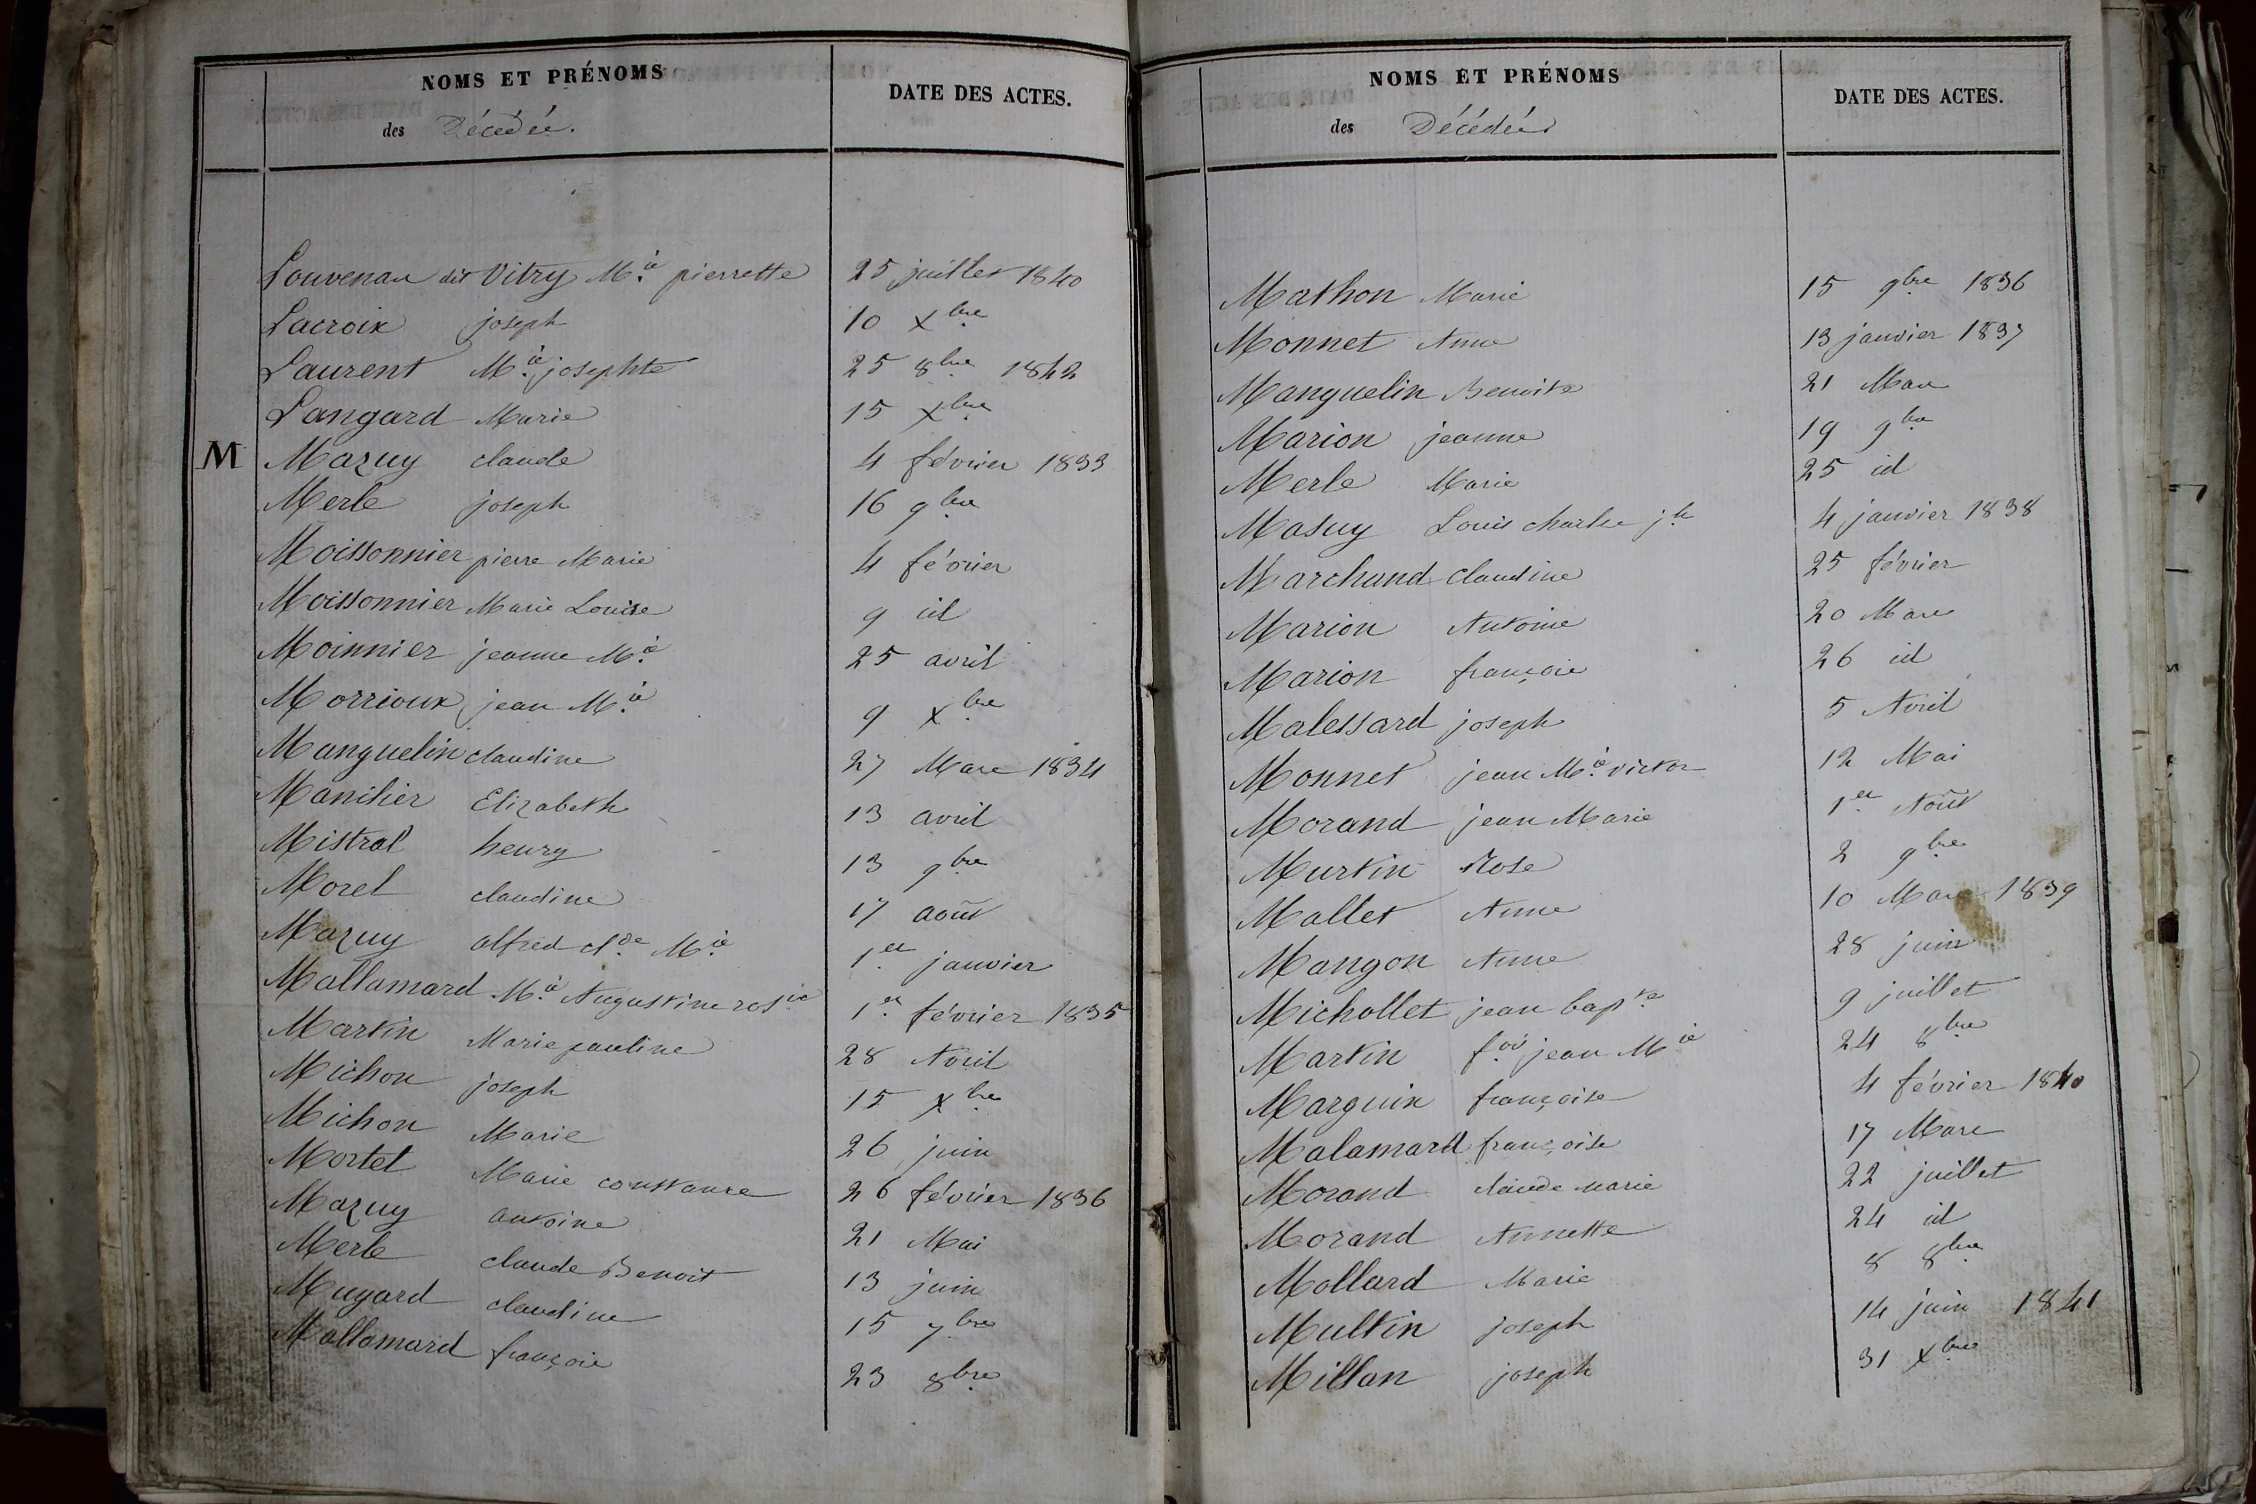 NOMS ET PRÉNOMS
des Décédés.
DATE DES ACTES.
Louvenau dit Vitry M.ie pierrette 25 juillet 1840
Lacroix joseph 10 Xbre
Laurent M.ie josephte 25 8bre 1842
Langard Marie 15 Xbre
M Mazuy claude 4 février 1833
Merle joseph 16 9bre
Moissonnier pierre Marie 4 février
Moissonnier Marie Louise 9 id
Moinnier jeanne M.ie 25 avril
Morrioux jean M.ie 9 Xbre
Manguelin claudine 27 Mars 1834
Manihier Elizabeth 13 avril
Mistral henry 13 9bre
Morel claudine 17 août
Mazuy alfred cl.de M.ie 1er janvier
Mallamard M.ie Augustine rosie 1er février 1835
Martin Marie pauline 28 Avril
Michon joseph 15 Xbre
Michon Marie 26 juin
Mortel Marie constance 26 février 1836
Mazuy antoine 21 Mai
Merle claude Benoit 13 juin
Mugard claudine 15 7bre
Mallamard françois 23 8bre
NOMS ET PRÉNOMS
des Décédés
DATE DES ACTES.
Mathon Marie 15 9bre 1836
Monnet Anne 13 janvier 1837
Manguelin Benoite 21 Mars
Marion jeanne 19 9bre
Merle Marie 25 id
Masuy Louis charles jh 4 janvier 1838
Marchand Claudine 25 février
Marion Antoine 20 Mars
Marion françois 26 id
Malessard joseph 5 Avril
Monnet jean M.ie victor 12 Mai
Morand jean Marie 1er Août
Murtin Rose 2 9bre
Mallet Anne 10 Mars 1839
Mangon Anne 28 juin
Michollet jean bapte 9 juillet
Martin f.ois jean Mie 24 8bre
Marguin françoise 4 février 1840
Malamard françoise 17 Mars
Morand claude marie 22 juillet
Morand Annette 24 id
Mollard Marie 8 8bre
Multin joseph 14 juin 1841
Millan joseph 31 Xbre